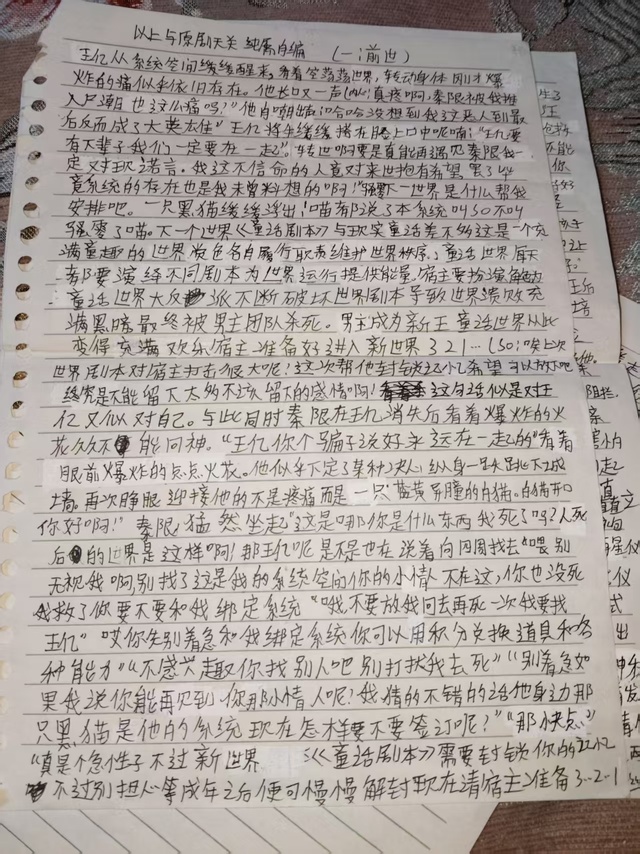 以上与原剧无关 纯属自编 （一：前世）
王亿从系统空间缓缓醒来，看着空荡荡世界，转动身体 因才爆
炸的痛似乎依旧存在。他长叹一声（心：真疼啊，秦限被我推
入尸潮 也这么痛吗？"他自嘲地：哈哈没想到我这恶人到最
后反而成了大英雄"王亿将手缓缓捂在胸上口中呢喃："要
有下辈子我们一定要在一起"。转世啊要是真能再遇见秦限我一
定对现诺言。我这不信命的人竟对来世抱有希望 罢了毕
竟系统的存在也是我未曾料想的啊！"下一世界是什么帮我
安排吧。一只黑猫缓缓浮出：喵都说了本系统叫SO不叫
骚零了喵。下一个世界《童话剧本》与现实童话差不多这是一个充
满童趣的世界 角色各自履行职责维护世界秩序，童话世界每天
都要演绎不同剧本为世界运行提供能量，宿主要扮演解
童话世界大反派不断破坏世界剧本导致世界溃败充
满黑暗最终被男主团队杀死。男主成为新王童话世界从此
变得充满欢乐！宿主准备好进入新世界 3 2 1…（SO：唉上次
世界剧本对宿主打击很大呢！这次帮他封锁记忆希望可以好吧
终究是不能留下太多不该留下的感情啊！这句话似是对王
亿又似对自己。与此同时秦限在王亿消失后看着爆炸的火
花久久不能回神。"王亿你个骗子说好永远在一起的"看着
眼前爆炸的点点火花。他似乎下定了某种决心纵身一跃跳下城
墙。再次睁眼迎接他的不是疼痛而是一只蓝黄异瞳的白猫。白猫开口
你好啊！"秦限猛然坐起"这是哪你是什么东西我死了吗？人死
后的世界是这样啊！那王亿呢是不是也在 说着向四周找去"喂别
无视我啊，别找了这是我的系统空间你的小情人不在这，你也没死
我救了你要不要和我绑定系统"哦不要放我回去再死一次我要找
王亿"哎你先别着急和我绑定系统你可以用积分兑换道具和各
种能力""不感兴趣你找别人吧别打扰我去死""别着急如
果我说你能再见到你那小情人呢？我猜的不错的话他身边那
只黑猫是他的系统 现在怎样要不要签订呢？""那快点"
"真是个急性子不过新世界《童话剧本》需要封锁你的记忆
不过别担心等成年之后便可慢慢解封现在请宿主准备3-2-1